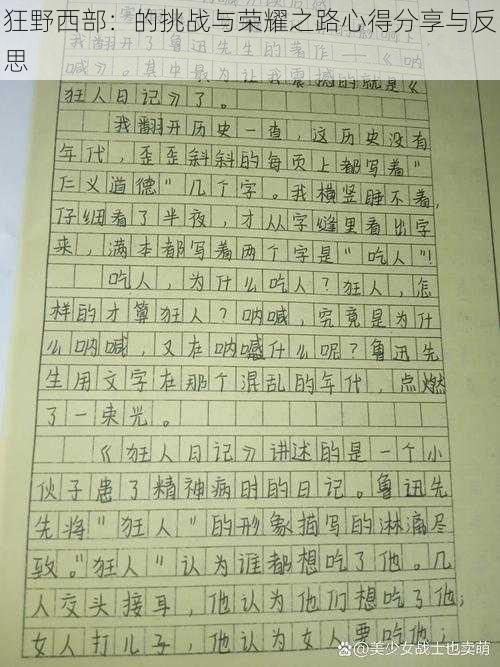 狂野西部：的挑战与荣耀之路心得分享与反
思
开了鲁迅先生的著作——《呐
喊》。其中最为让我震撼的就是《
狂人日记》了。
我翻开历史一查，这历史没有
年代，歪歪斜斜的每页上都写着"
仁义道德"几个字。我横竖睡不着，
仔细看了半夜，才从字缝里看出字
来，满本都写着两个字是"吃人"！
吃人，为什么吃人？狂人，怎
样的才算狂人？呐喊，究竟是为什
么呐喊，又在呐喊什么呢？鲁迅先
生用文字在那个混乱的年代，点燃
了一束光。
《狂人日记》讲述的是一个小
伙子患了精神病时的日记。鲁迅先
先将"狂人"的形象描写的淋漓尽
致。"狂人"认为谁都想吃了他。几
人交头接耳，他认为他们想吃了他；
女人打儿子，他认为女人要吃他；
美少女战士也卖萌